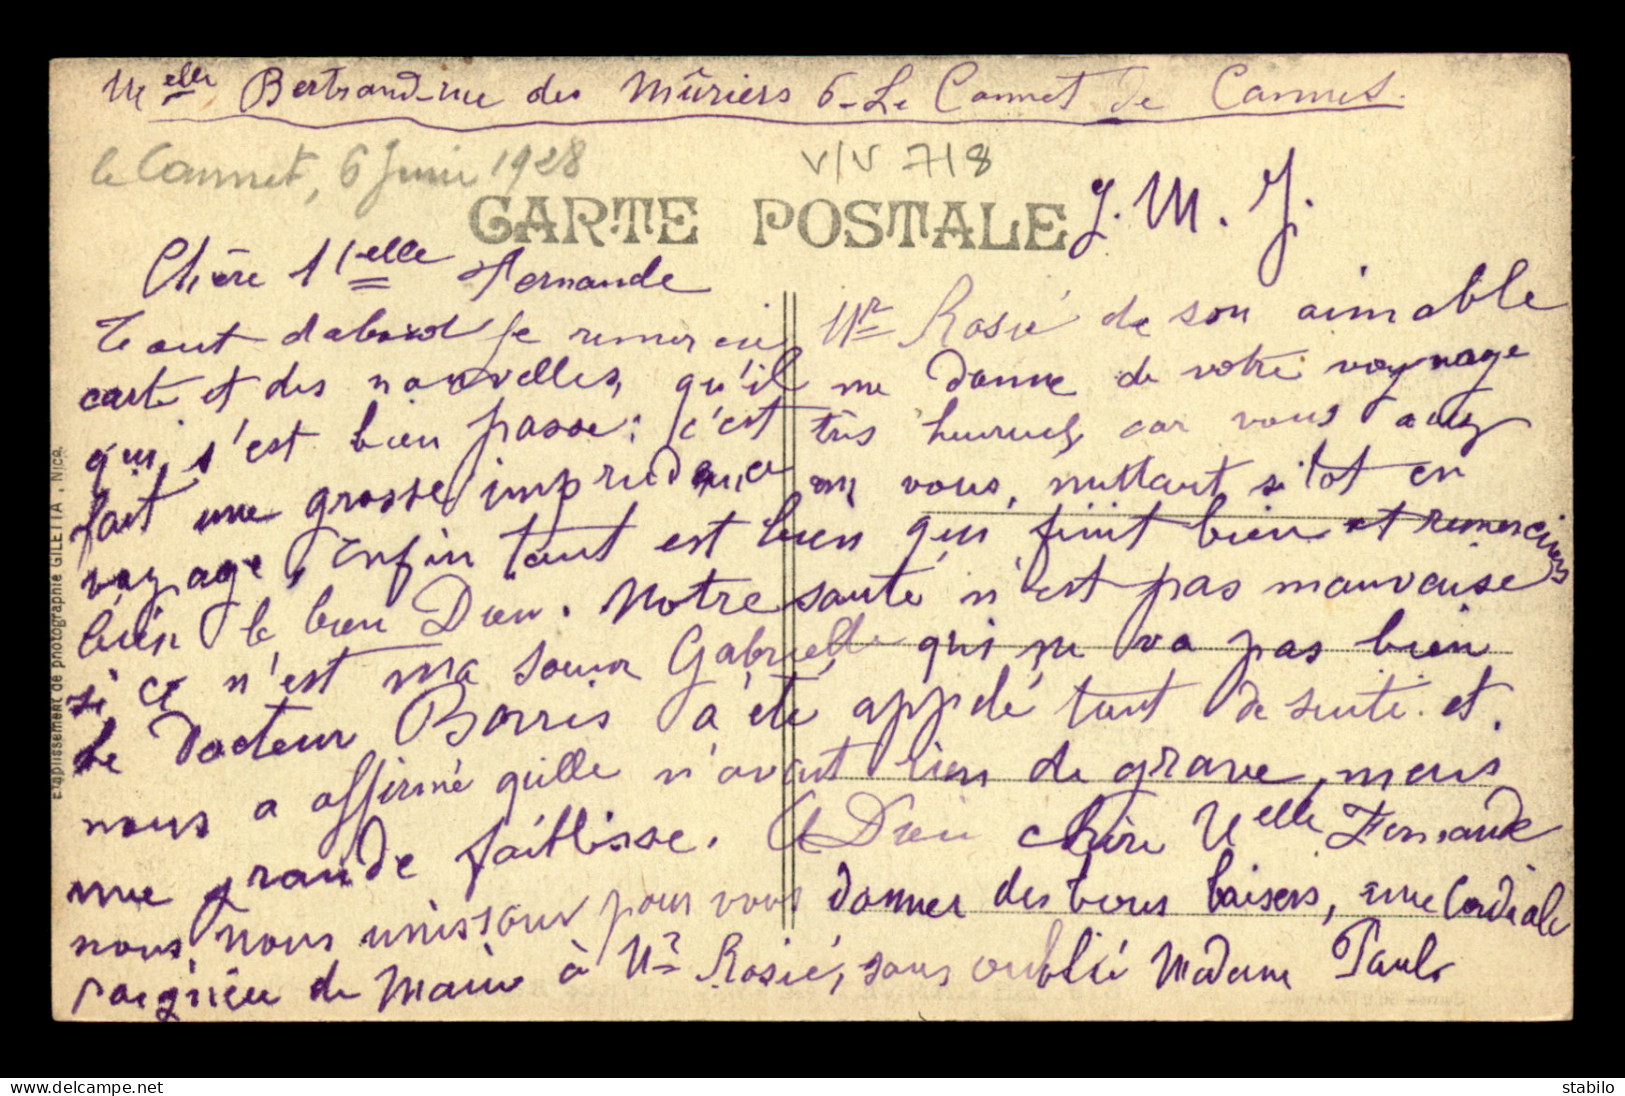 Melle Bertrand-rue des Mûriers 6-Le Cannet de Cannes.
le Cannet, 6 Juin 1928
V/V 718
CARTE POSTALE
J. M. J.
Chère Melle Fernande
Tout dabord je remercie Mr Rosié de son aimable
carte et des nouvelles, qu'il me donne de votre voynage
qui s'est bien passe; c'est très heureuse, car vous avez
fait une grosse imprudence en vous, mettant sitot en
voyage, Enfin tout est bien qui finit bien et remercions
bien le bon Dieu. Notre santé n'est pas mauvaise
si ce n'est ma soeur Gabrielle qui ne va pas bien
Le Docteur Borris a été appelé tout de suite et.
nous a affirmé qu'ille n'avait rien de grave, mais
une grande faiblisse. A Dieu chère Melle Fernande
nous, nous unissons pour vous donner des bons baisers, une Cordiale
poignieu de main à Mr Rosié, sans oublié Madame Paul
Etablissement de photographie GILETTA, Nice
stabilo
www.delcampe.net